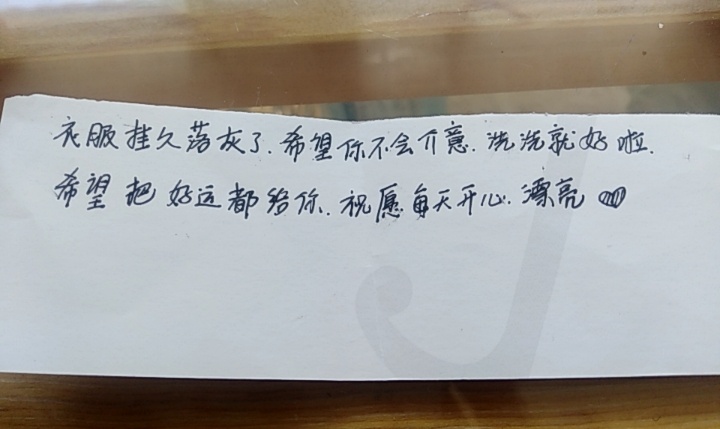 衣服挂久落灰了.希望你不会介意.洗洗就好啦.
希望把好运都给你.祝愿每天开心.漂亮